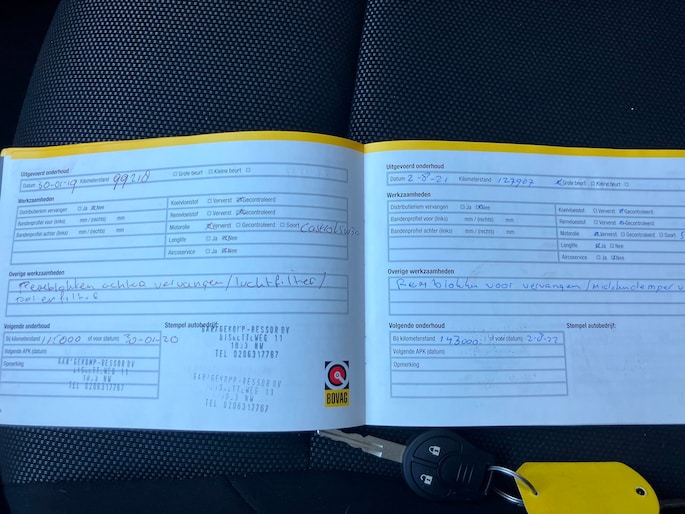 Uitgevoerd onderhoud
Datum 30-01-19 Kilometerstand 99210 Grote beurt Kleine beurt
Werkzaamheden
Distributieriem vervangen Ja Nee
Bandenprofiel voor (links) mm / (rechts) mm
Bandenprofiel achter (links) mm / (rechts) mm
Koelvloeistof Ververst Gecontroleerd
Remvloeistof Ververst Gecontroleerd
Motorolie Ververst Gecontroleerd Soort Castrol 5W30
Longlife Ja Nee
Aircoservice Ja Nee
Overige werkzaamheden
Remblokken achter vervangen / luchtfilter /
Volgende onderhoud
Bij kilometerstand 115000 of voor (datum) 30-01-20
Volgende APK (datum)
Opmerking
Stempel autobedrijf:
TEL 0206317767
TEL 0206317767
TEL 0206317767
BOVAG
Uitgevoerd onderhoud
Datum 2-8-21 Kilometerstand 127907 Grote beurt Kleine beurt
Werkzaamheden
Distributieriem vervangen Ja Nee
Bandenprofiel voor (links) mm / (rechts) mm
Bandenprofiel achter (links) mm / (rechts) mm
Koelvloeistof Ververst Gecontroleerd
Remvloeistof Ververst Gecontroleerd
Motorolie Ververst Gecontroleerd Soort
Longlife Ja Nee
Aircoservice Ja Nee
Overige werkzaamheden
Remblokken voor vervangen / middendemper
Volgende onderhoud
Bij kilometerstand 143000 of voor (datum) 2-8-22
Volgende APK (datum)
Opmerking
Stempel autobedrijf: